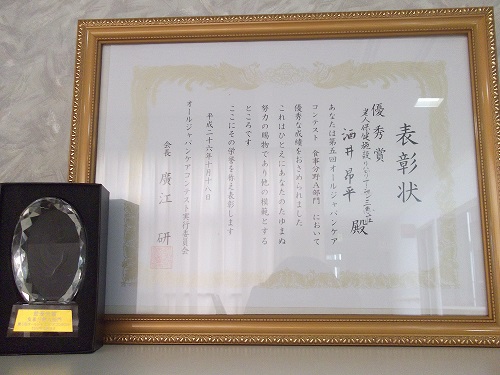 表彰状
優秀賞
老人保健施設
酒井昂平 殿
あなたは第五回オールジャパンケア
コンテスト 食事分野A部門 において
優秀な成績をおさめられました
これはひとえにあなたのたゆまぬ
努力の賜物であり他の模範とする
ところです
ここにその栄誉を称え表彰します
平成二十六年十月十八日
オールジャパンケアコンテスト実行委員会
会長 廣江 研